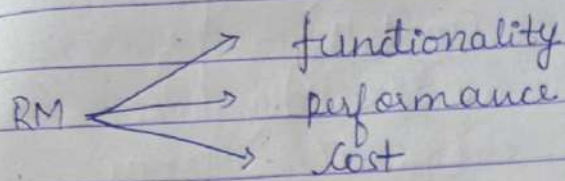 functionality
RM
performance
cost